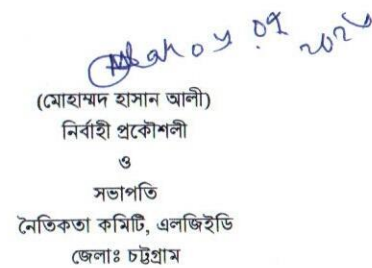 (মোহাম্মদ হাসান আলী)
নির্বাহী প্রকৌশলী
ও
সভাপতি
নৈতিকতা কমিটি, এলজিইডি
জেলাঃ চট্টগ্রাম